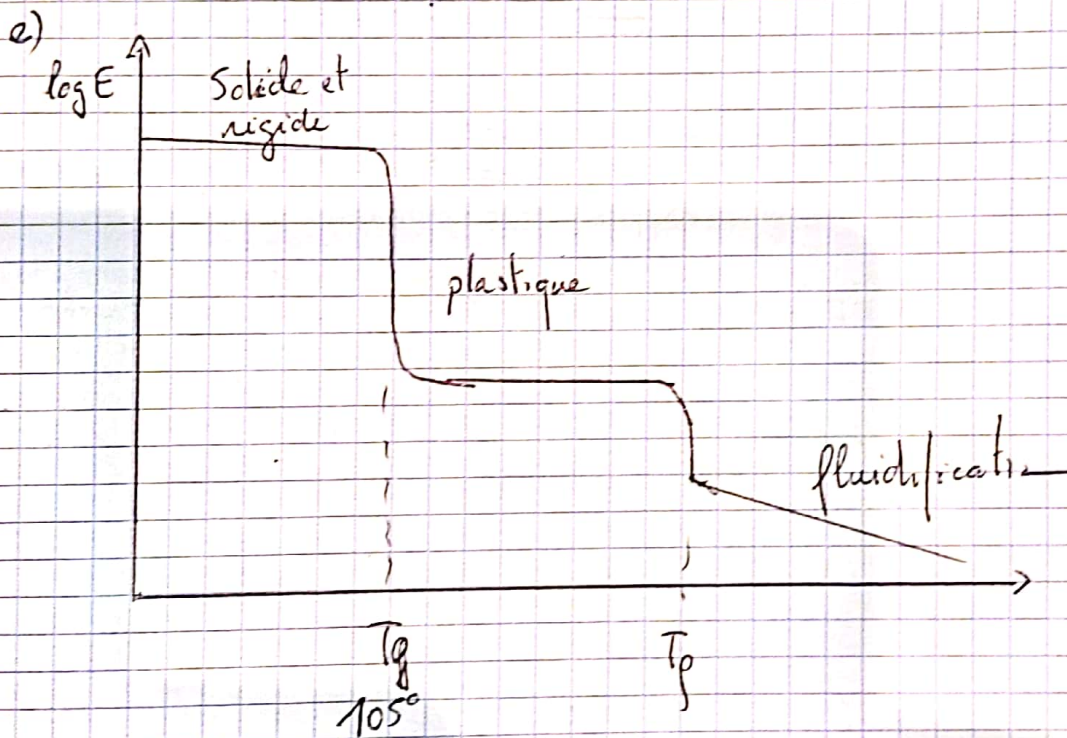 e)
log E
Solide et
rigide
plastique
fluidificati
Tg
105°
Tf